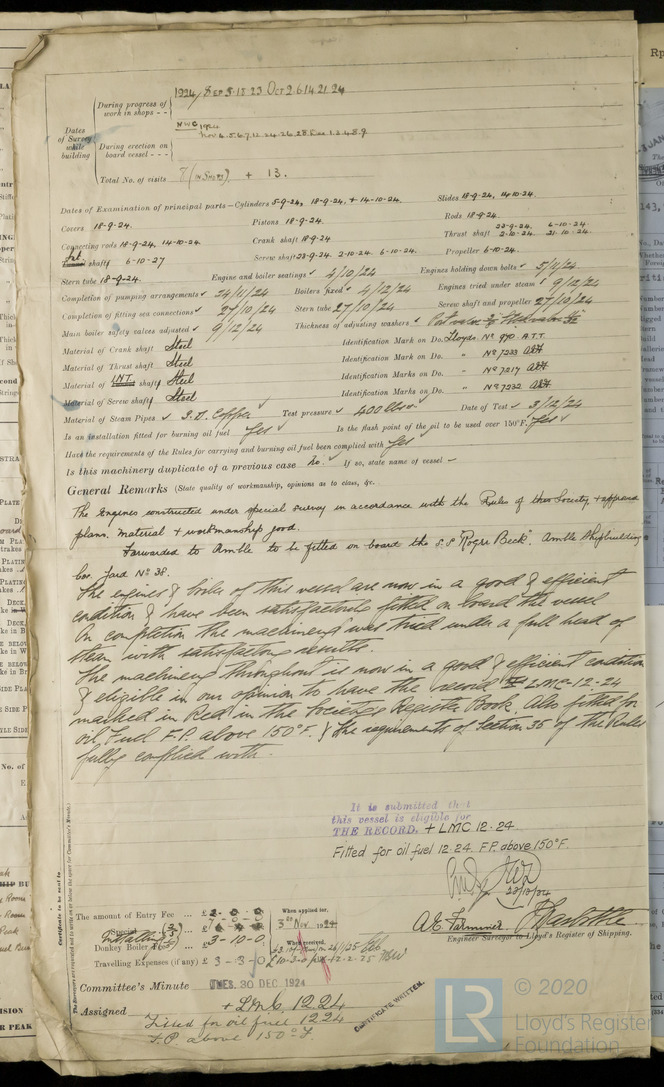 1924/ Sep 5.15.23 Oct 2.6.14.21.24
During progress of work in shops - -
Dates of Survey while building
NWC 1924
Nov 4.5.6.7.12.24.26.28 Dec 1.2.4.8.9
During erection on board vessel - - -
Total No. of visits 8 (in shops) + 13.
Dates of Examination of principal parts—Cylinders 5-9-24, 18-9-24, + 14-10-24. Slides 18-9-24, 14-10-24.
Covers 18-9-24. Pistons 18-9-24. Rods 18-9-24.
Connecting rods 18-9-24, 14-10-24. Crank shaft 18-9-24 Thrust shaft 23-9-24. 6-10-24. 2-10-24. 21-10-24.
Int. shaft 6-10-27 Screw shaft 23-9-24 2-10-24. 6-10-24. Propeller 6-10-24.
Stern tube 18-9-24. Engine and boiler seatings 4/10/24 Engines holding down bolts 5/11/24
Completion of pumping arrangements 24/11/24 Boilers fixed 4/12/24 Engines tried under steam 9/12/24
Completion of fitting sea connections 27/10/24 Stern tube 27/10/24 Screw shaft and propeller 27/10/24
Main boiler safety valves adjusted 9/12/24 Thickness of adjusting washers
Material of Crank shaft Steel Identification Mark on Do. Lloyds. No 970. A.T.T.
Material of Thrust shaft Steel Identification Mark on Do. " No 7233
Material of INT. shafts Steel Identification Marks on Do. " No 7217
Material of Screw shafts Steel Identification Marks on Do. " No 7232
Material of Steam Pipes S.D. Copper Test pressure 400 lbs Date of Test 3/12/24
Is an installation fitted for burning oil fuel Yes Is the flash point of the oil to be used over 150°F. Yes
Have the requirements of the Rules for carrying and burning oil fuel been complied with Yes
Is this machinery duplicate of a previous case No. If so, state name of vessel
General Remarks (State quality of workmanship, opinions as to class, &c.
The Engines constructed under special survey in accordance with the Rules of this Society + approved
plans. Material + workmanship good.
Forwarded to Amble to be fitted on board the S.S "Roger Beck". Amble Shipbuilding
Co. Yard No 38.
The engines & boiler of this vessel are now in a good & efficient
condition & have been satisfactorily fitted on board the vessel
On completion the machinery was tried under a full head of
steam with satisfactory results.
The machinery throughout is now in a good & efficient condition
& eligible in our opinion to have the record LMC-12-24
marked in Red in the Societys Register Book. Also fitted for
oil Fuel F.P. above 150°F. & the requirements of Section 35 of the Rules
fully complied with.
It is submitted that
this vessel is eligible for
THE RECORD. + LMC 12-24
Fitted for oil fuel 12.24. F.P. above 150°F.
The amount of Entry Fee ... £
When applied for,
3rd Nov. 1924
Special
Donkey Boiler Fee ... £ 3-10-0
When received,
Travelling Expenses (if any) £ 3-3-0
Engineer Surveyor to Lloyd's Register of Shipping.
Committee's Minute TUES. 30 DEC. 1924
Assigned + L.M.C. 12.24
Fitted for oil fuel 12.24
F.P. above 150°F.
CERTIFICATE WRITTEN.
Certificate to be sent to
© 2020
LR Lloyd's Register
Foundation